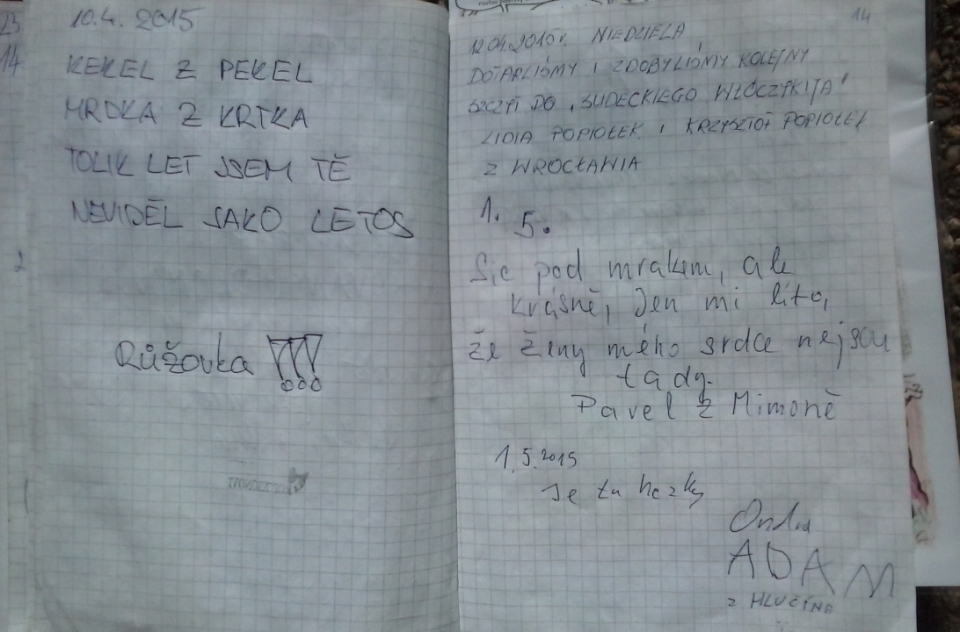 23
14
10.4. 2015
KEKEL Z PEKEL
MRDKA Z KRTKA
TOLIK LET JSEM TĚ
NEVIDĚL JAKO LETOS
Růžovka !!!
14
12.04.2015r. NIEDZIELA
DOTARLIŚMY I ZDOBYLIŚMY KOLEJNY
SZCZYT DO "SUDECKIEGO WŁÓCZYKIJA"
LIDIA POPIOŁEK I KRZYSZTOF POPIOŁEK
Z WROCŁAWIA
1. 5.
Sic pod mrakem, ale
krásně, jen mi líto,
že ženy mého srdce nejsou
tady.
Pavel z Mimoně
1.5.2015
Je tu hezky
Ondra
ADAM
z HLUČÍNA